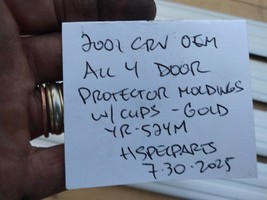 2001 CRV OEM
ALL 4 DOOR
PROTECTOR MOLDINGS
W/ CLIPS - GOLD
YR-524M
HSPECPARTS
7.30.2025